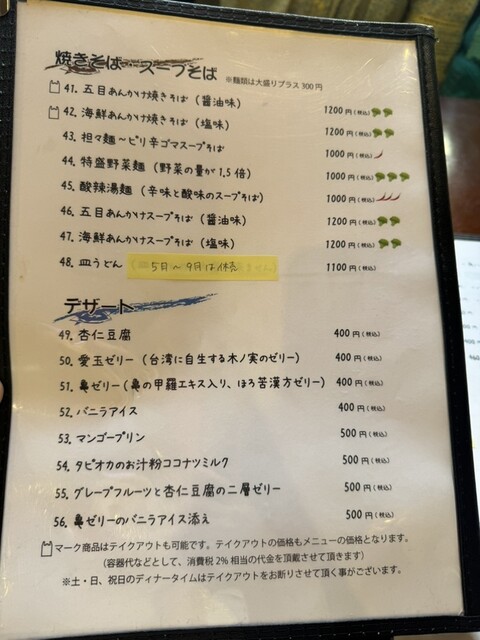 焼きそば スープそば ※麺類は大盛りプラス300円
41. 五目あんかけ焼きそば（醤油味） 1200円（税込）
42. 海鮮あんかけ焼きそば（塩味） 1200円（税込）
43. 担々麺〜ピリ辛ゴマスープそば 1000円（税込）
44. 特盛野菜麺（野菜の量が1.5倍） 1000円（税込）
45. 酸辣湯麺（辛味と酸味のスープそば） 1000円（税込）
46. 五目あんかけスープそば（醤油味） 1200円（税込）
47. 海鮮あんかけスープそば（塩味） 1200円（税込）
48. 皿うどん 5月〜9月は休売 1100円（税込）
デザート
49. 杏仁豆腐 400円（税込）
50. 愛玉ゼリー（台湾に自生する木ノ実のゼリー） 400円（税込）
51. 亀ゼリー（亀の甲羅エキス入り、ほろ苦漢方ゼリー） 400円（税込）
52. バニラアイス 400円（税込）
53. マンゴープリン 500円（税込）
54. タピオカのお汁粉ココナツミルク 500円（税込）
55. グレープフルーツと杏仁豆腐の二層ゼリー 500円（税込）
56. 亀ゼリーのバニラアイス添え 500円（税込）
マーク商品はテイクアウトも可能です。テイクアウトの価格もメニューの価格となります。
（容器代などとして、消費税2%相当の代金を頂戴させて頂きます）
※土・日、祝日のディナータイムはテイクアウトをお断りさせて頂く事がございます。